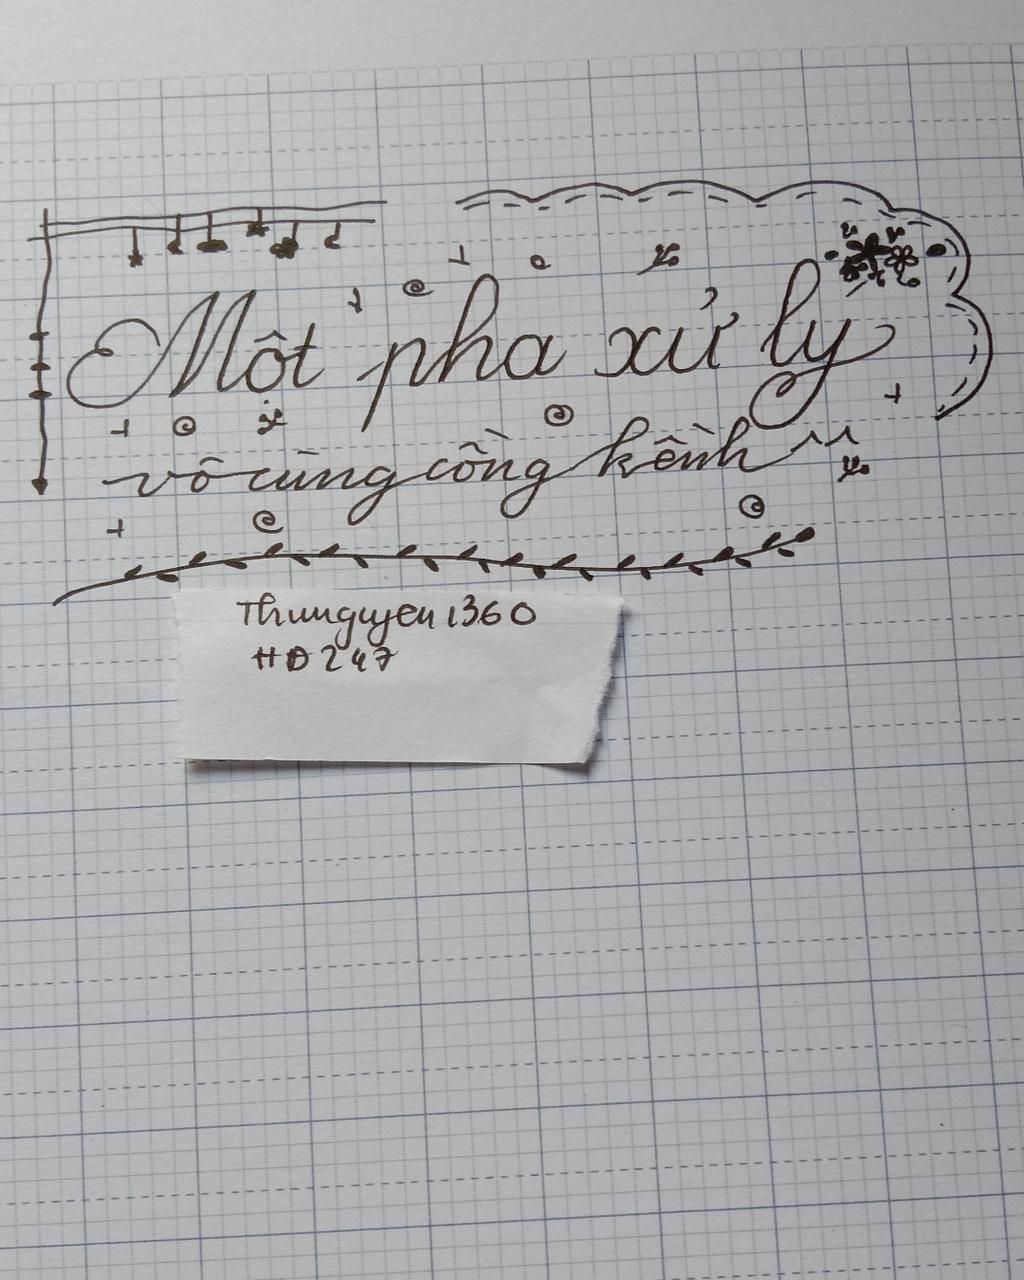 Một pha xử ly
vô cùng cồng kềnh ^^
Thunguyen1360
HĐ247